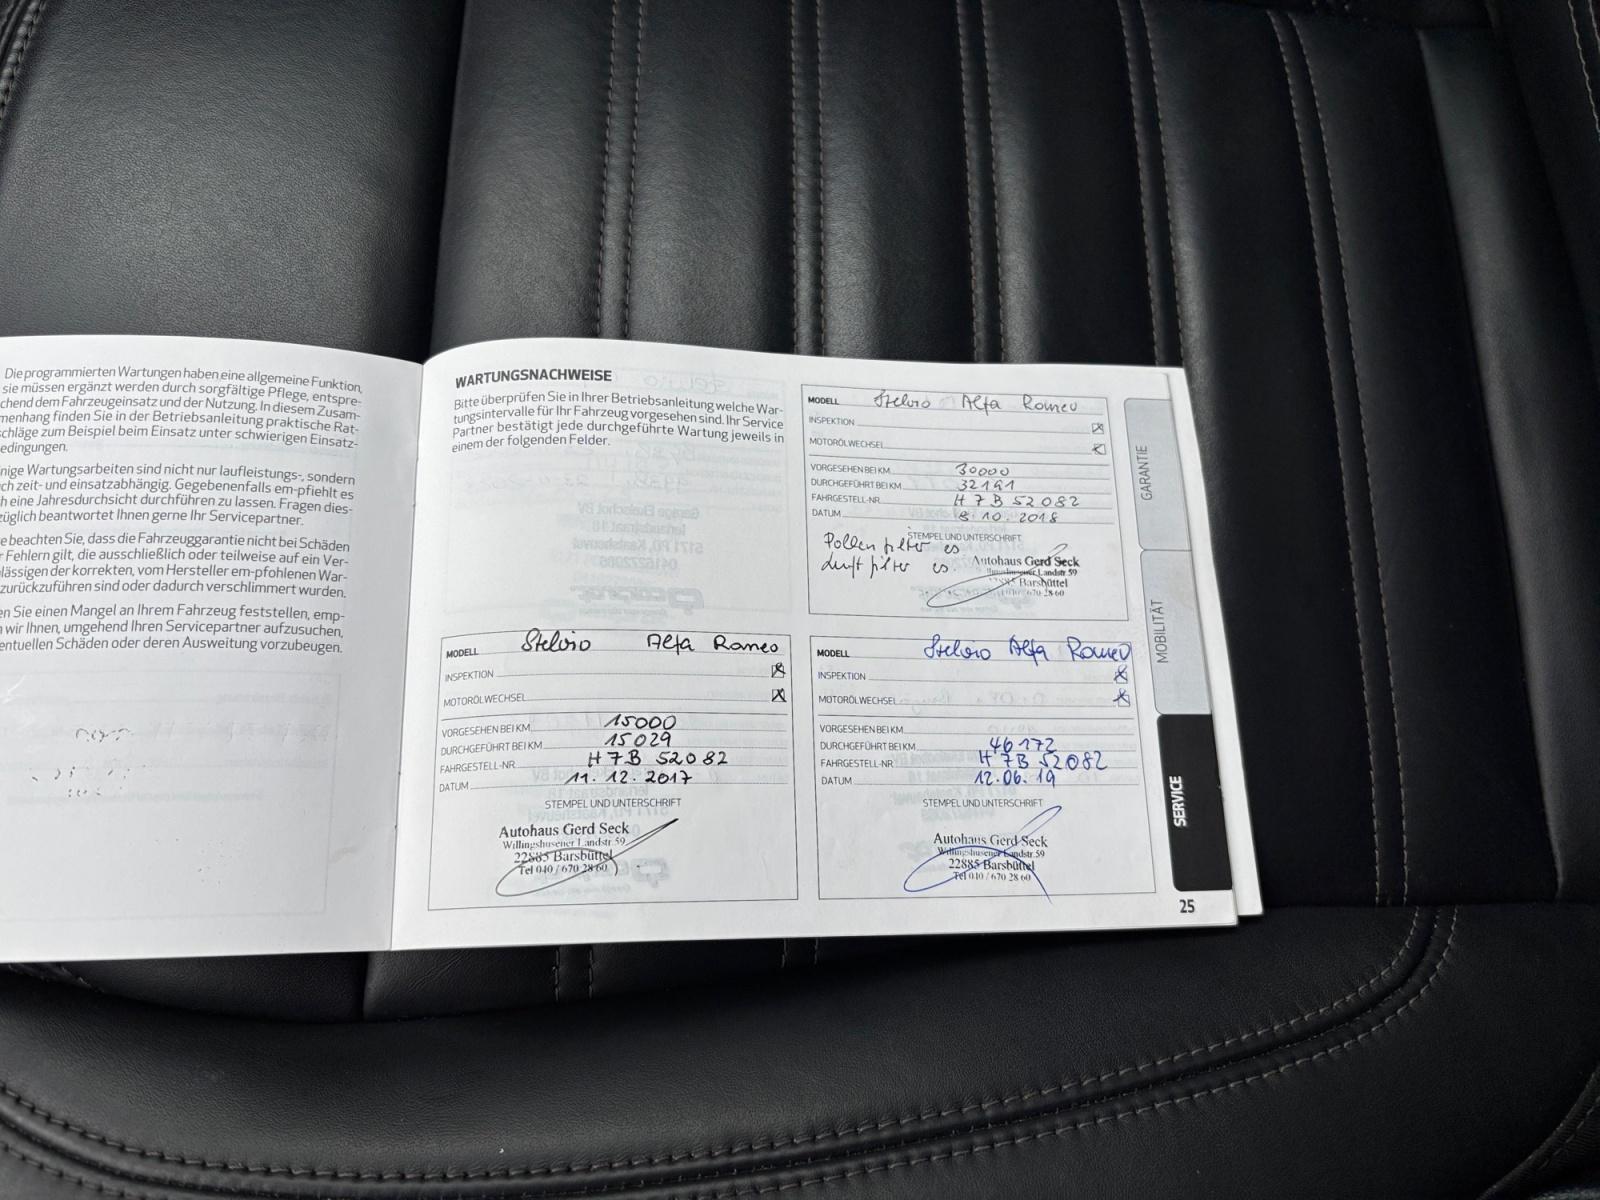 Die programmierten Wartungen haben eine allgemeine Funktion,
sie müssen ergänzt werden durch sorgfältige Pflege, entspre-
chend dem Fahrzeugeinsatz und der Nutzung. In diesem Zusam-
menhang finden Sie in der Betriebsanleitung praktische Rat-
schläge zum Beispiel beim Einsatz unter schwierigen Einsatz-
edingungen.
nige Wartungsarbeiten sind nicht nur laufleistungs-, sondern
ch zeit- und einsatzabhängig. Gegebenenfalls em-pfiehlt es
h eine Jahresdurchsicht durchführen zu lassen. Fragen dies-
züglich beantwortet Ihnen gerne Ihr Servicepartner.
e beachten Sie, dass die Fahrzeuggarantie nicht bei Schäden
r Fehlern gilt, die ausschließlich oder teilweise auf ein Ver-
lässigen der korrekten, vom Hersteller em-pfohlenen War-
zurückzuführen sind oder dadurch verschlimmert wurden.
en Sie einen Mangel an Ihrem Fahrzeug feststellen, emp-
n wir Ihnen, umgehend Ihren Servicepartner aufzusuchen,
entuellen Schäden oder deren Ausweitung vorzubeugen.
WARTUNGSNACHWEISE
Bitte überprüfen Sie in Ihrer Betriebsanleitung welche War-
tungsintervalle für Ihr Fahrzeug vorgesehen sind. Ihr Service
Partner bestätigt jede durchgeführte Wartung jeweils in
einem der folgenden Felder.
MODELL Stelvio Alfa Romeo
INSPEKTION
MOTORÖLWECHSEL
VORGESEHEN BEI KM 30000
DURCHGEFÜHRT BEI KM 32191
FAHRGESTELL-NR. H 7 B 52082
DATUM 8.10.2018
STEMPEL UND UNTERSCHRIFT
Pollenfilter es
Luftfilter es
Autohaus Gerd Seck
Willingshusener Landstr. 59
22885 Barsbüttel
670 28 60
MODELL Stelvio Alfa Romeo
INSPEKTION
MOTORÖLWECHSEL
VORGESEHEN BEI KM 15000
DURCHGEFÜHRT BEI KM 15029
FAHRGESTELL-NR. H 7 B 52082
DATUM 11.12.2017
STEMPEL UND UNTERSCHRIFT
Autohaus Gerd Seck
Willingshusener Landstr. 59
22885 Barsbüttel
Tel 040 / 670 28 60
MODELL Stelvio Alfa Romeo
INSPEKTION
MOTORÖLWECHSEL
VORGESEHEN BEI KM
DURCHGEFÜHRT BEI KM 46172
FAHRGESTELL-NR. H 7B 52082
DATUM 12.06.19
STEMPEL UND UNTERSCHRIFT
Autohaus Gerd Seck
Willingshusener Landstr. 59
22885 Barsbüttel
Tel 040 / 670 28 60
GARANTIE
MOBILITÄT
SERVICE
25